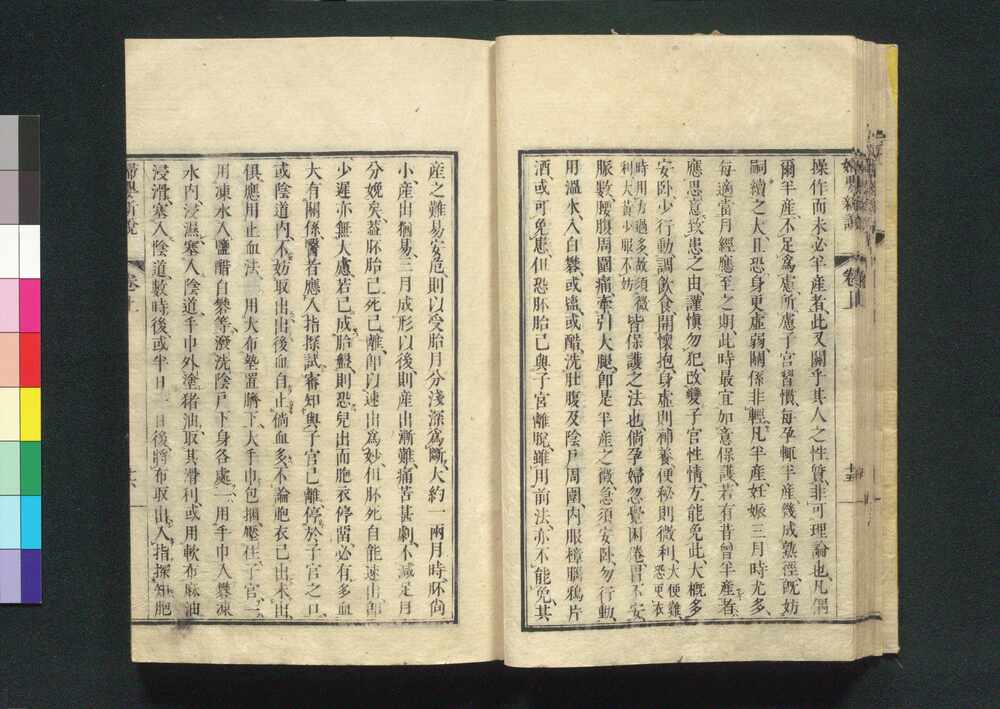 操作而未必半産者、此又關乎其人之性質、非可理論也、凡偶
爾半産、不足爲慮、所慮子宮習慣、每孕輒半産、幾成熟徑、旣妨
嗣續之大、且恐身更虛弱、關係非輕、凡半産、妊娠三月時尤多、
每適當月經應至之期、此時最宜如意保護、若有昔曾半産者、
應思意致患之由、謹愼勿犯、改變子宮性情、方能免此、大槪多
安卧、少行動、調飮食、開懷抱、身虛則補養、便秘則微利、大便難恐更衣
時用力過多故須微利大黃少服不妨皆保護之法也、倘孕婦忽覺困倦、胃不安、
脈數、腰腹周圍痛、牽引大腿、卽是半産之徵、急須安卧、勿行動、
用溫水、入白礬或鹽或醋、洗肚腹及陰戶周圍、內服樟腦鴉片
酒、或可免患、但恐胚胎已與子宮離脫、雖用前法、亦不能免、其
産之難易安危、則以受胎月分淺深爲斷、大約一兩月時、胚尙
小、産出猶易、三月成形以後、則産出漸難、痛苦甚劇、不減足月
分娩矣、蓋胚胎已死已離、卽以速出爲妙、但胚死自能速出、卽
少遲亦無大慮、若已成胎盤、則恐兒出而胞衣停留、必有多血、
大有關係、醫者應入指探試、審知與子宮已離、停於子宮之口、
或陰道內、不妨取出、出後血自止、倘血多、不論胞衣已出未出、
俱應用止血法、一用大布墊置臍下、大手巾包捆、壓住子宮、一
用凍水入鹽醋白礬等、潑洗陰戶下身各處、一用手巾入礬凍
水內浸濕、塞入陰道、手巾外塗猪油、取其滑利、或用軟布麻油
浸滑、塞入陰道、數時後、或半日一日後、將布取出、入指探知胞
婦嬰新說 卷上